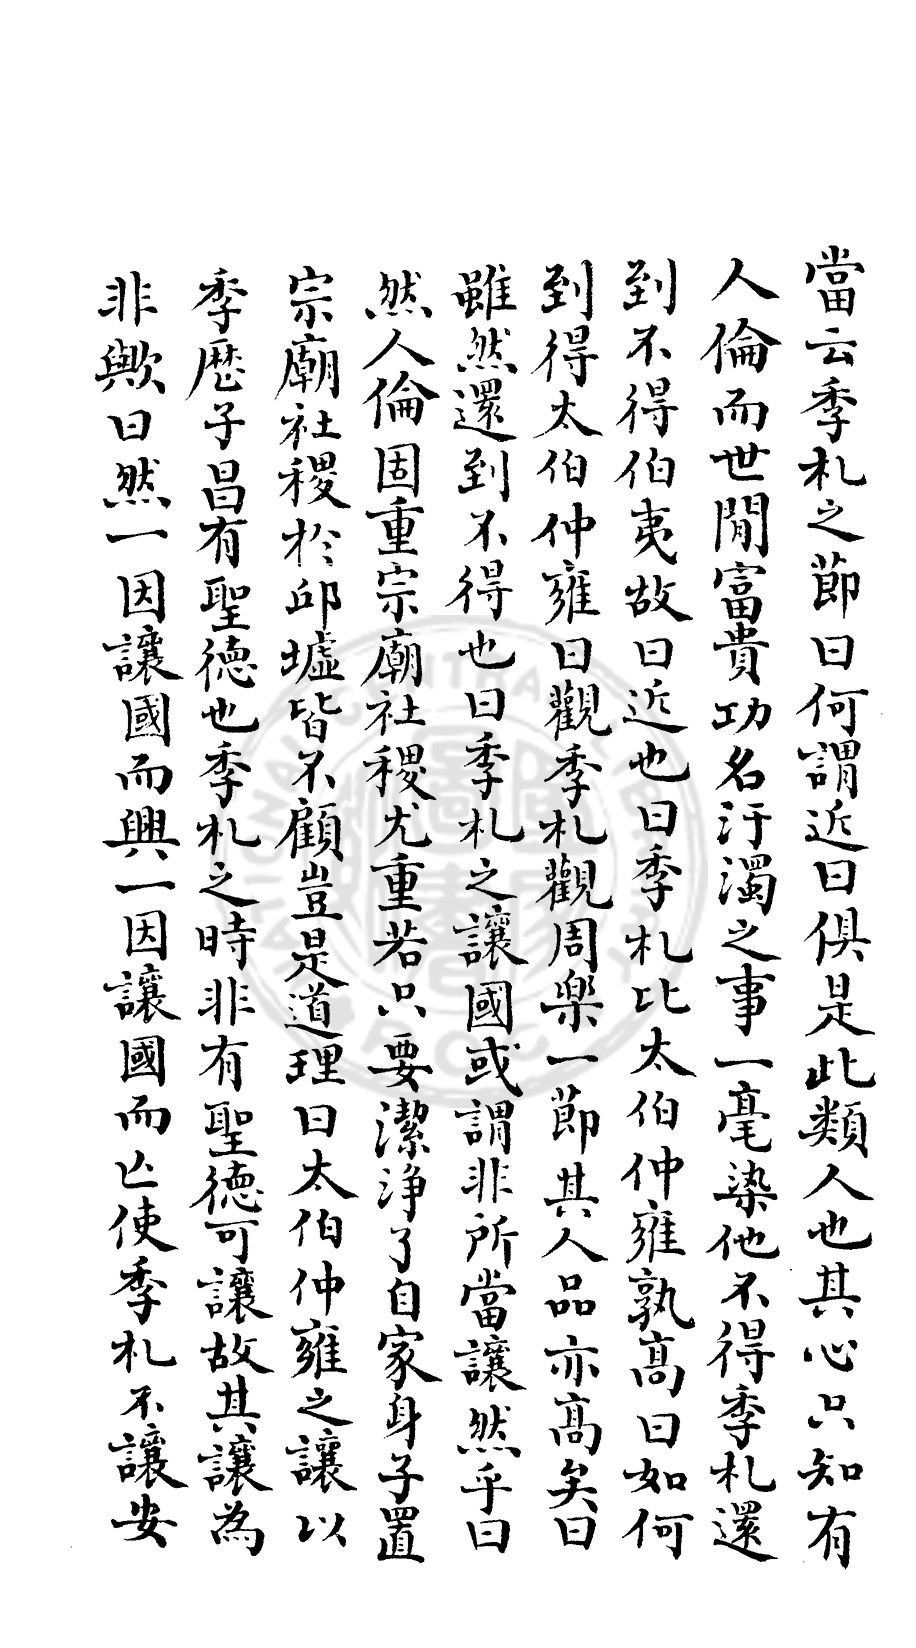 當云季札之節曰何謂近曰俱是此類人也其心只知有
人倫而世閒富貴功名汙濁之事一毫染他不得季札還
到不得伯夷故曰近也曰季札比太伯仲雍孰高曰如何
到得太伯仲雍曰觀季札觀周樂一節其人品亦高矣曰
雖然還到不得也曰季札之讓國或謂非所當讓然乎曰
然人倫固重宗廟社稷尤重若只要潔淨了自家身子置
宗廟社稷於邱墟皆不顧豈是道理曰太伯仲雍之讓以
季歷子昌有聖德也季札之時非有聖德可讓故其讓為
非歟曰然一因讓國而興一因讓國而亾使季札不讓安